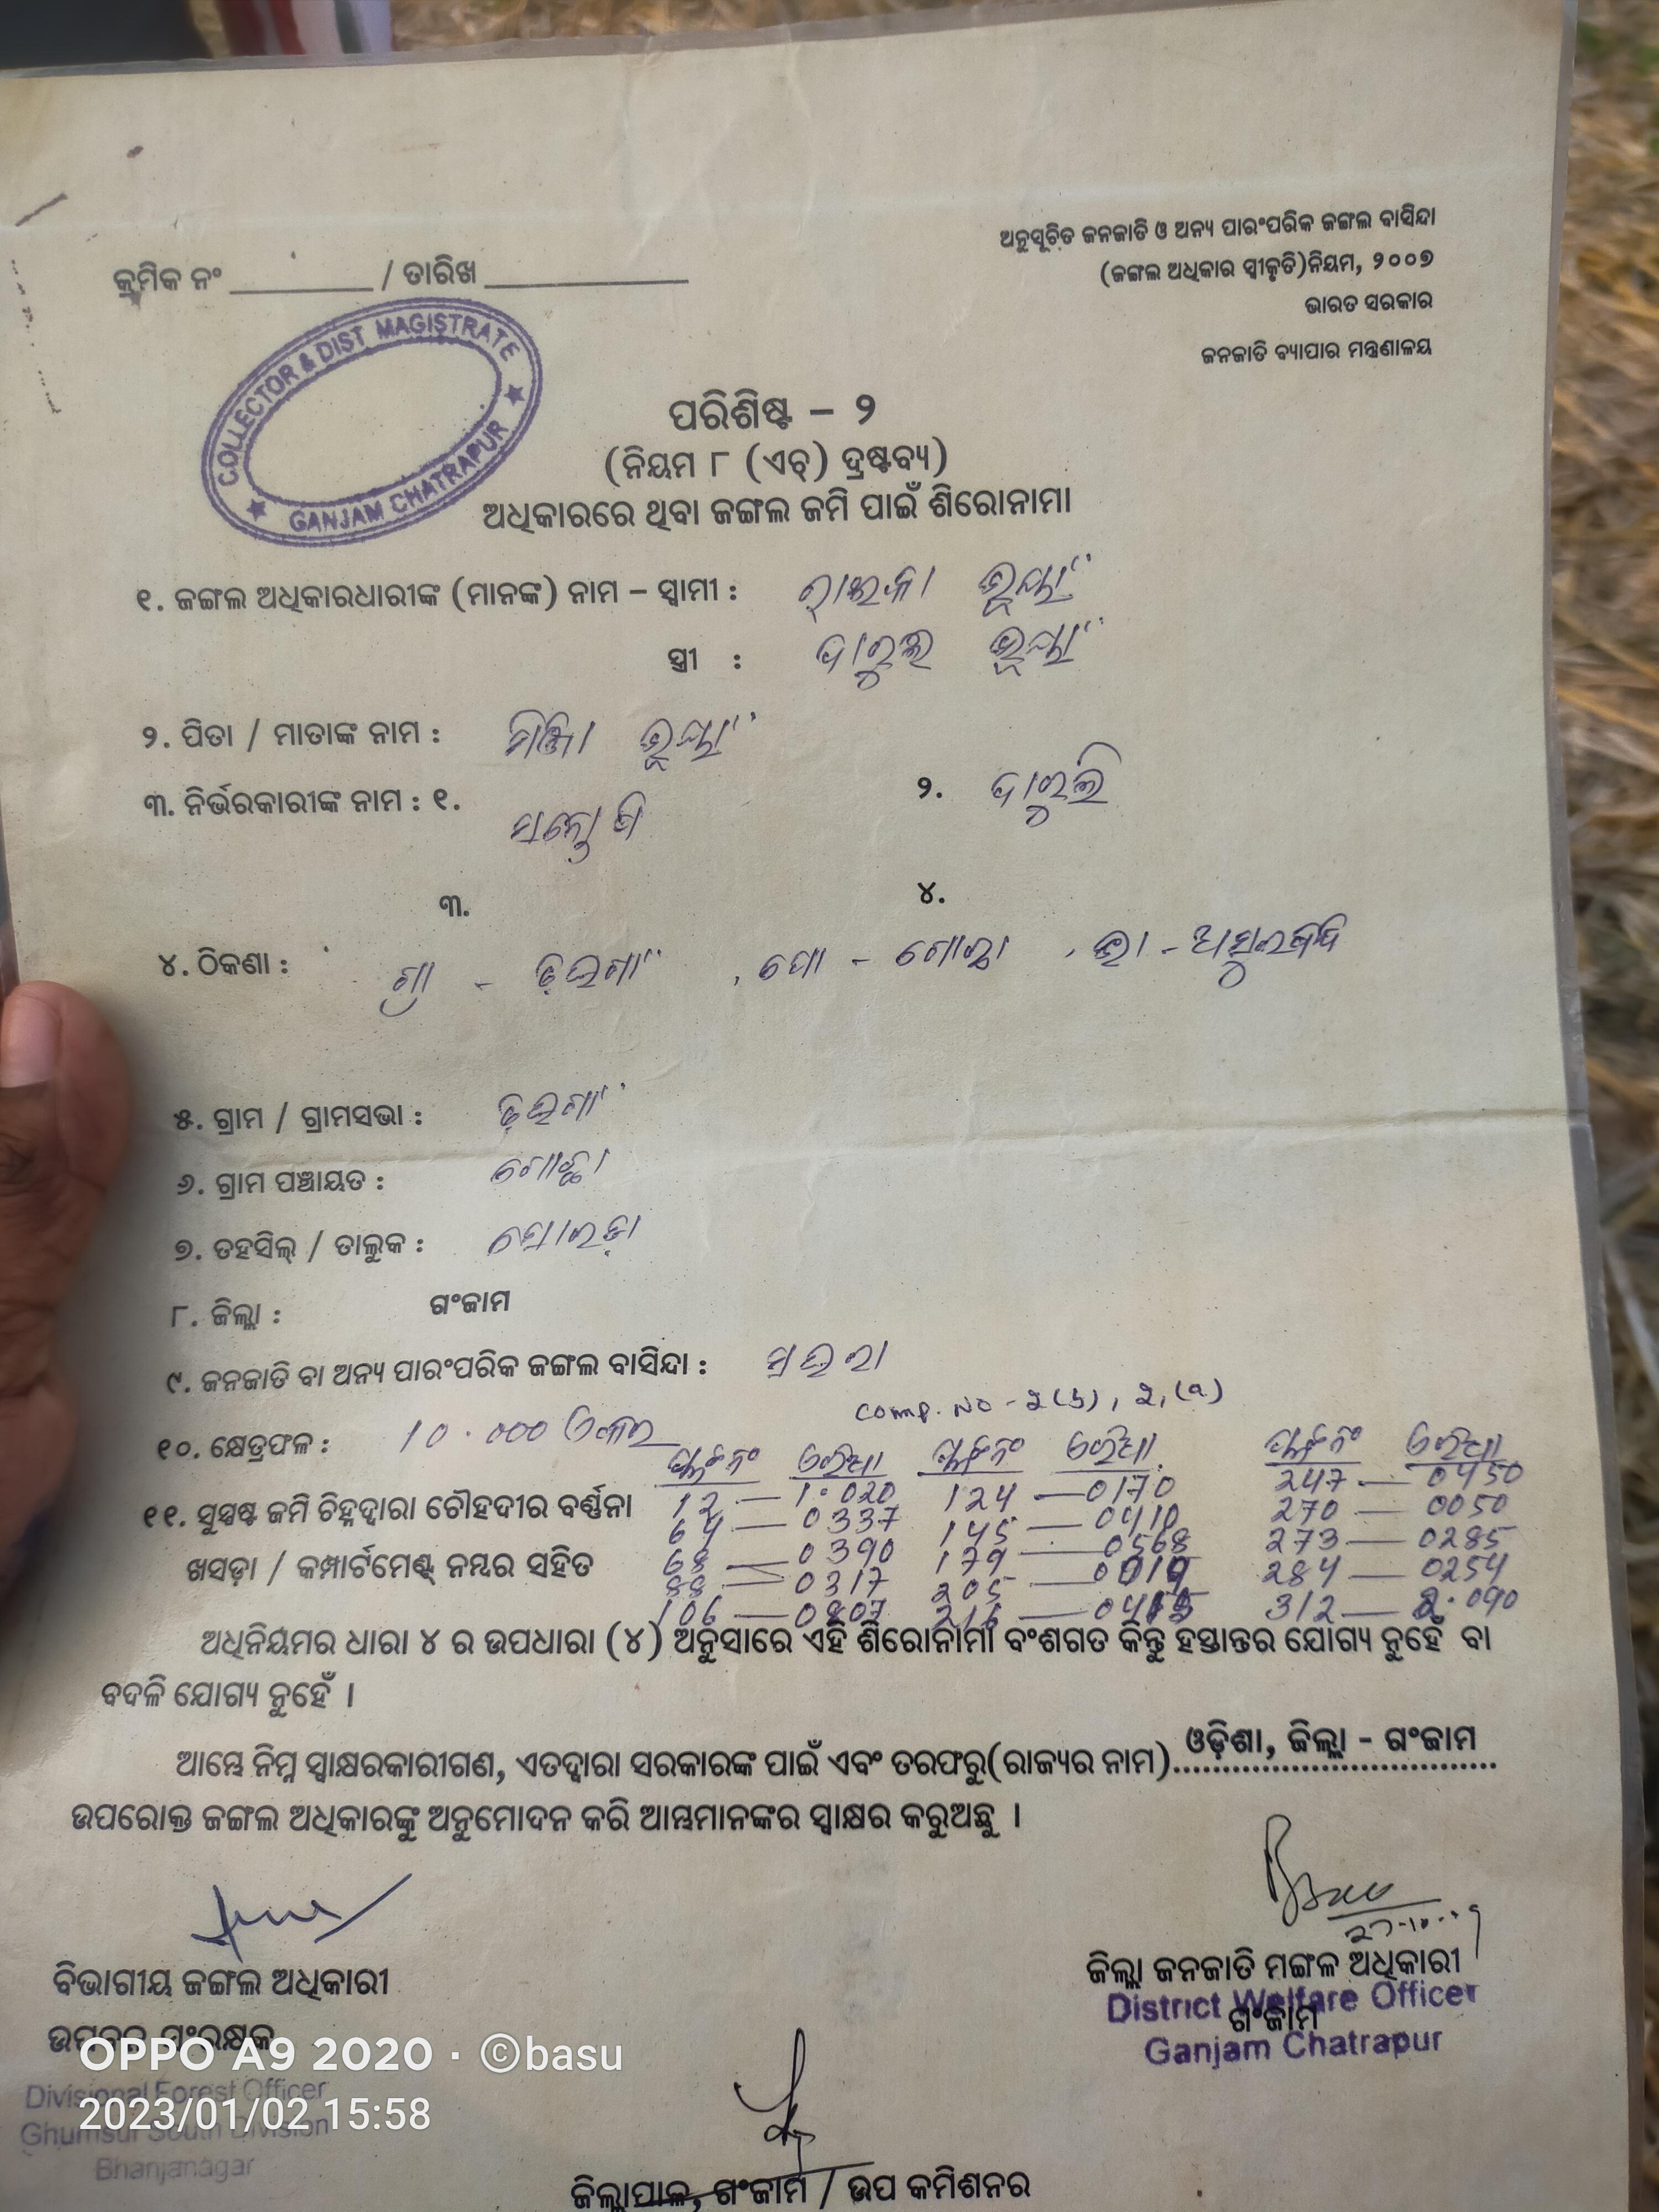 ଅନୁସୂଚିତ ଜନଜାତି ଓ ଅନ୍ୟ ପାରଂପରିକ ଜଙ୍ଗଲ ବାସିନ୍ଦା
(ଜଙ୍ଗଲ ଅଧିକାର ସ୍ୱୀକୃତି)ନିୟମ, ୨୦୦୭
ଭାରତ ସରକାର
ଜନଜାତି ବ୍ୟାପାର ମନ୍ତ୍ରଣାଳୟ
କ୍ରମିକ ନଂ ________ / ତାରିଖ ____________
COLLECTOR & DIST MAGISTRATE
GANJAM CHATRAPUR
ପରିଶିଷ୍ଟ – ୨
(ନିୟମ ୮ (ଏଚ୍) ଦ୍ରଷ୍ଟବ୍ୟ)
ଅଧିକାରରେ ଥିବା ଜଙ୍ଗଲ ଜମି ପାଇଁ ଶିରୋନାମା
୧. ଜଙ୍ଗଲ ଅଧିକାରଧାରୀଙ୍କ (ମାନଙ୍କ) ନାମ – ସ୍ୱାମୀ : ଭୂୟାଁ
ସ୍ତ୍ରୀ : ଭୂୟାଁ
୨. ପିତା / ମାତାଙ୍କ ନାମ : ଭୂୟାଁ
୩. ନିର୍ଭରକାରୀଙ୍କ ନାମ : ୧. ୨.
୩. ୪.
୪. ଠିକଣା : ଗ୍ରା - , ପୋ -
୫. ଗ୍ରାମ / ଗ୍ରାମସଭା :
୬. ଗ୍ରାମ ପଞ୍ଚାୟତ :
୭. ତହସିଲ୍ / ତାଲୁକ : ସୋରଡ଼ା
୮. ଜିଲ୍ଲା : ଗଂଜାମ
୯. ଜନଜାତି ବା ଅନ୍ୟ ପାରଂପରିକ ଜଙ୍ଗଲ ବାସିନ୍ଦା : ସଉରା
Comp. No - 2(b), 2,(a)
୧୦. କ୍ଷେତ୍ରଫଳ : 10.000 ଏକର
ପ୍ଲଟ ନଂ ଏରିଆ ପ୍ଲଟ ନଂ ଏରିଆ ପ୍ଲଟ ନଂ ଏରିଆ
୧୧. ସୁସ୍ପଷ୍ଟ ଜମି ଚିହ୍ନଦ୍ୱାରା ଚୌହଦୀର ବର୍ଣ୍ଣନା 12 — 1.020 124 — 0170 247 — 0450
64 — 0337 145 — 0410 270 — 0050
ଖସଡ଼ା / କମ୍ପାର୍ଟମେଣ୍ଟ୍ ନମ୍ବର ସହିତ 68 — 0390 179 — 0568 273 — 0285
88 — 0317 205 — 284 — 0254
106 — 0807 216 — 312 —
ଅଧିନିୟମର ଧାରା ୪ ର ଉପଧାରା (୪) ଅନୁସାରେ ଏହି ଶିରୋନାମା ବଂଶଗତ କିନ୍ତୁ ହସ୍ତାନ୍ତର ଯୋଗ୍ୟ ନୁହେଁ ବା
ବଦଳି ଯୋଗ୍ୟ ନୁହେଁ ।
ଆମ୍ଭେ ନିମ୍ନ ସ୍ୱାକ୍ଷରକାରୀଗଣ, ଏତଦ୍ଦ୍ୱାରା ସରକାରଙ୍କ ପାଇଁ ଏବଂ ତରଫରୁ(ରାଜ୍ୟର ନାମ)ଓଡ଼ିଶା, ଜିଲ୍ଲା - ଗଂଜାମ
ଉପରୋକ୍ତ ଜଙ୍ଗଲ ଅଧିକାରଙ୍କୁ ଅନୁମୋଦନ କରି ଆମ୍ଭମାନଙ୍କର ସ୍ୱାକ୍ଷର କରୁଅଛୁ ।
ବିଭାଗୀୟ ଜଙ୍ଗଲ ଅଧିକାରୀ
ସଂରକ୍ଷକ
Divisional Forest Officer
Ghumsur South Division
Bhanjanagar
ଜିଲ୍ଲା ଜନଜାତି ମଙ୍ଗଳ ଅଧିକାରୀ
ଗଂଜାମ
District Welfare Officer
Ganjam Chatrapur
ଜିଲ୍ଲାପାଳ, ଗଂଜାମ / ଉପ କମିଶନର
OPPO A9 2020 · ©basu
2023/01/02 15:58